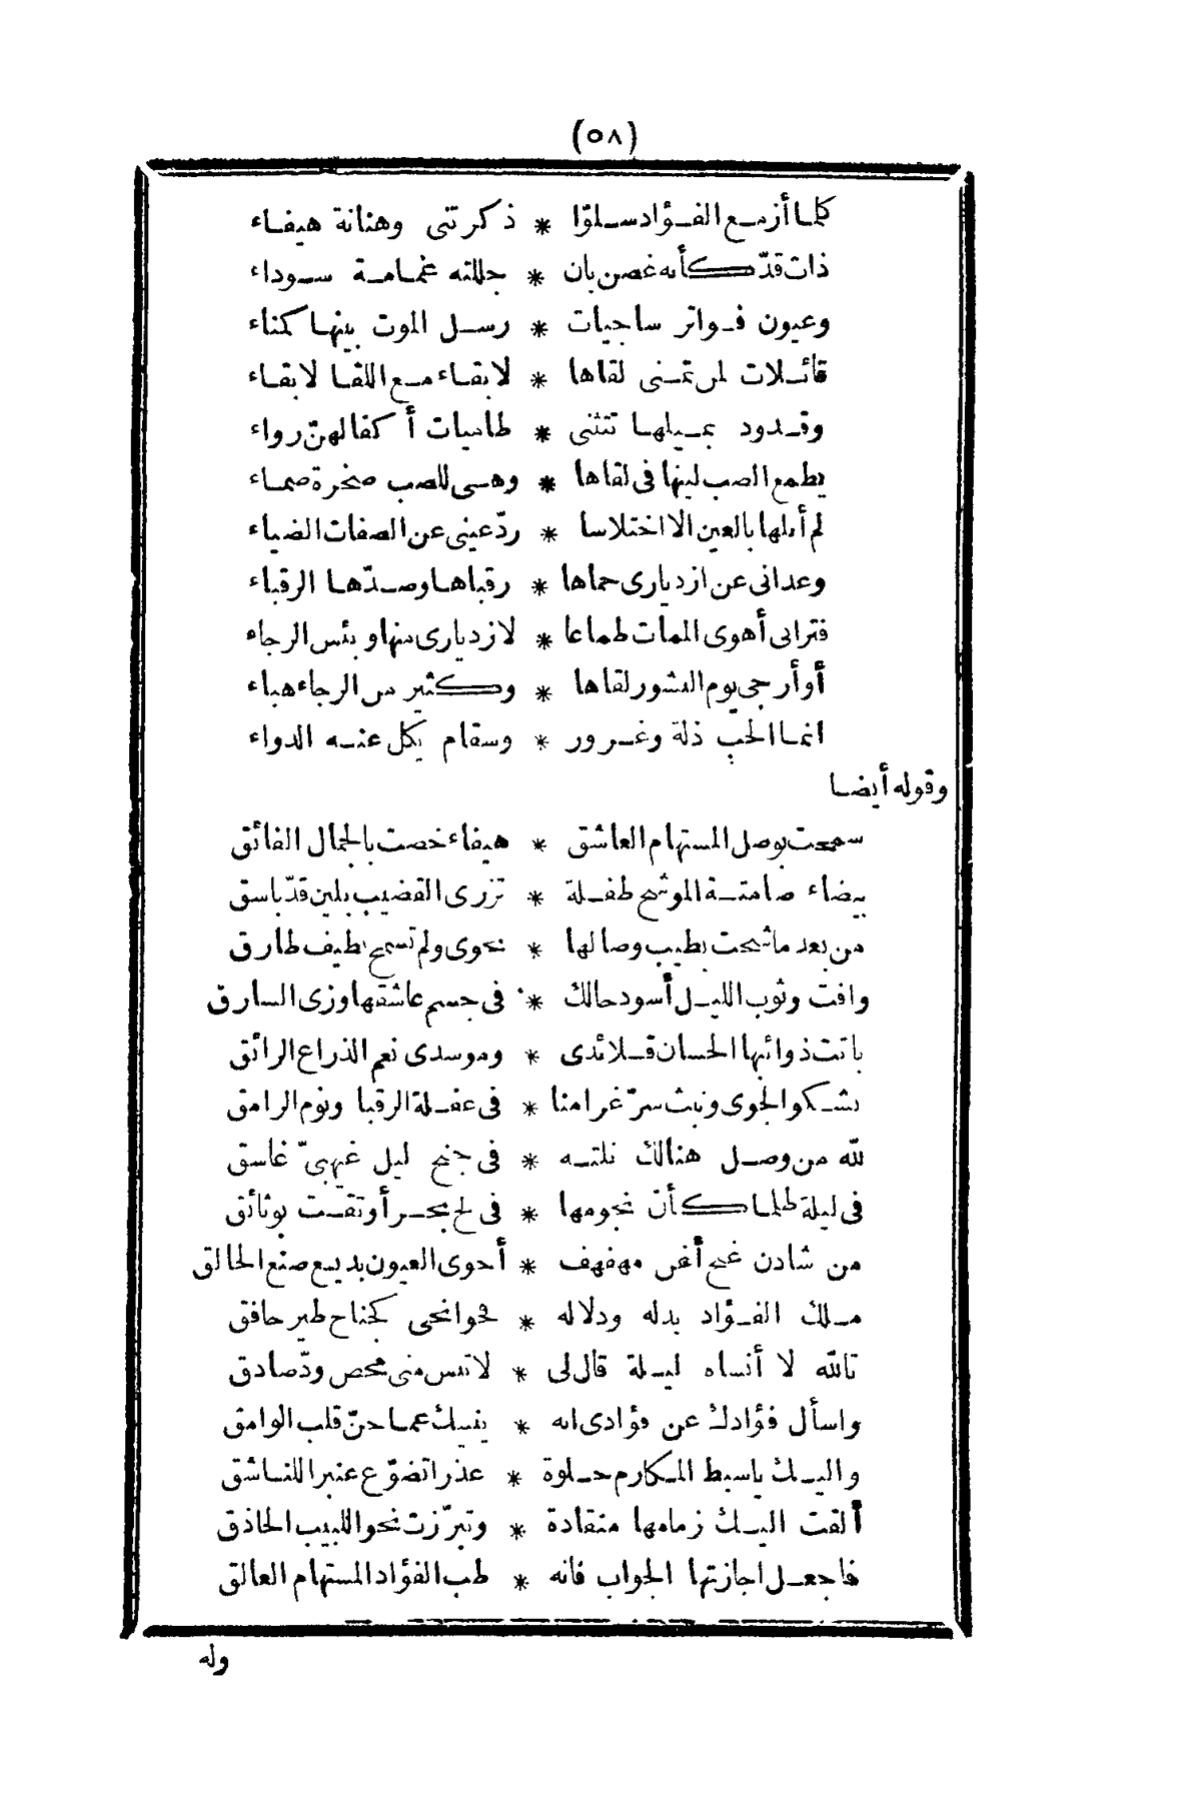 (٥٨)
كلما أزمع الفؤاد سلوّا * ذكرتنى وهنانة هيفاء
ذات قدّ كأنه غصن بان * جللته غمامة سوداء
وعيون فواتر ساجيات * رسل الموت بينها كمناء
قائلات لمن تمنى لقاها * لا بقاء مع اللقا لا بقاء
وقدود بميلها تتثنى * طاميات أكفالهنّ رواء
يطمع الصب لينها فى لقاها * وهى للصب صخرة صماء
لم أملها بالعين الا اختلاسا * ردّ عينى عن الصفات الضياء
وعدانى عن ازديارى حماها * رقباها وصدّها الرقباء
فترانى أهوى الممات طماعا * لازديارى منها وبئس الرجاء
أو أرجى يوم النشور لقاها * وكثير من الرجاء هباء
انما الحب ذلة وغرور * وسقام يكل عنه الدواء
وقوله أيضا
سمحت بوصل المستهام العاشق * هيفاء خصت بالجمال الفائق
بيضاء صامتة الموشح طفلة * تزرى القضيب بلين قدّ باسق
من بعد ما شحت بطيب وصالها * نحوى ولم تسمح بطيف طارق
وافت وثوب الليل أسود حالك * فى جسم عاشقها وزى السارق
باتت ذوائبها الحسان قلائدى * وموسدى نعم الذراع الرائق
نشكو الجوى ونبث سرّ غرامنا * فى غفلة الرقبا ونوم الرامق
لله من وصل هنالك نلته * فى جنح ليل غيهبىّ غاسق
فى ليلة ظلما كأن نجومها * فى لج بحر أوثقت بوثائق
من شادن غنج أغن مهفهف * أحوى العيون بديع صنع الخالق
ملك الفؤاد بدله ودلاله * فجوانحى كجناح طير خافق
تالله لا أنساه ليلة قال لى * لا تنس منى محض ودّ صادق
واسأل فؤادك عن فؤادى انه * ينبيك عما جنّ قلب الوامق
واليك يا سبط المكارم حلوة * عذرا تضوّع عنبرا للناشق
ألقت اليك زمامها منقادة * وتبرّزت نحو اللبيب الحاذق
فاجعل اجازتها الجواب فانه * طب الفؤاد المستهام العالق
وله